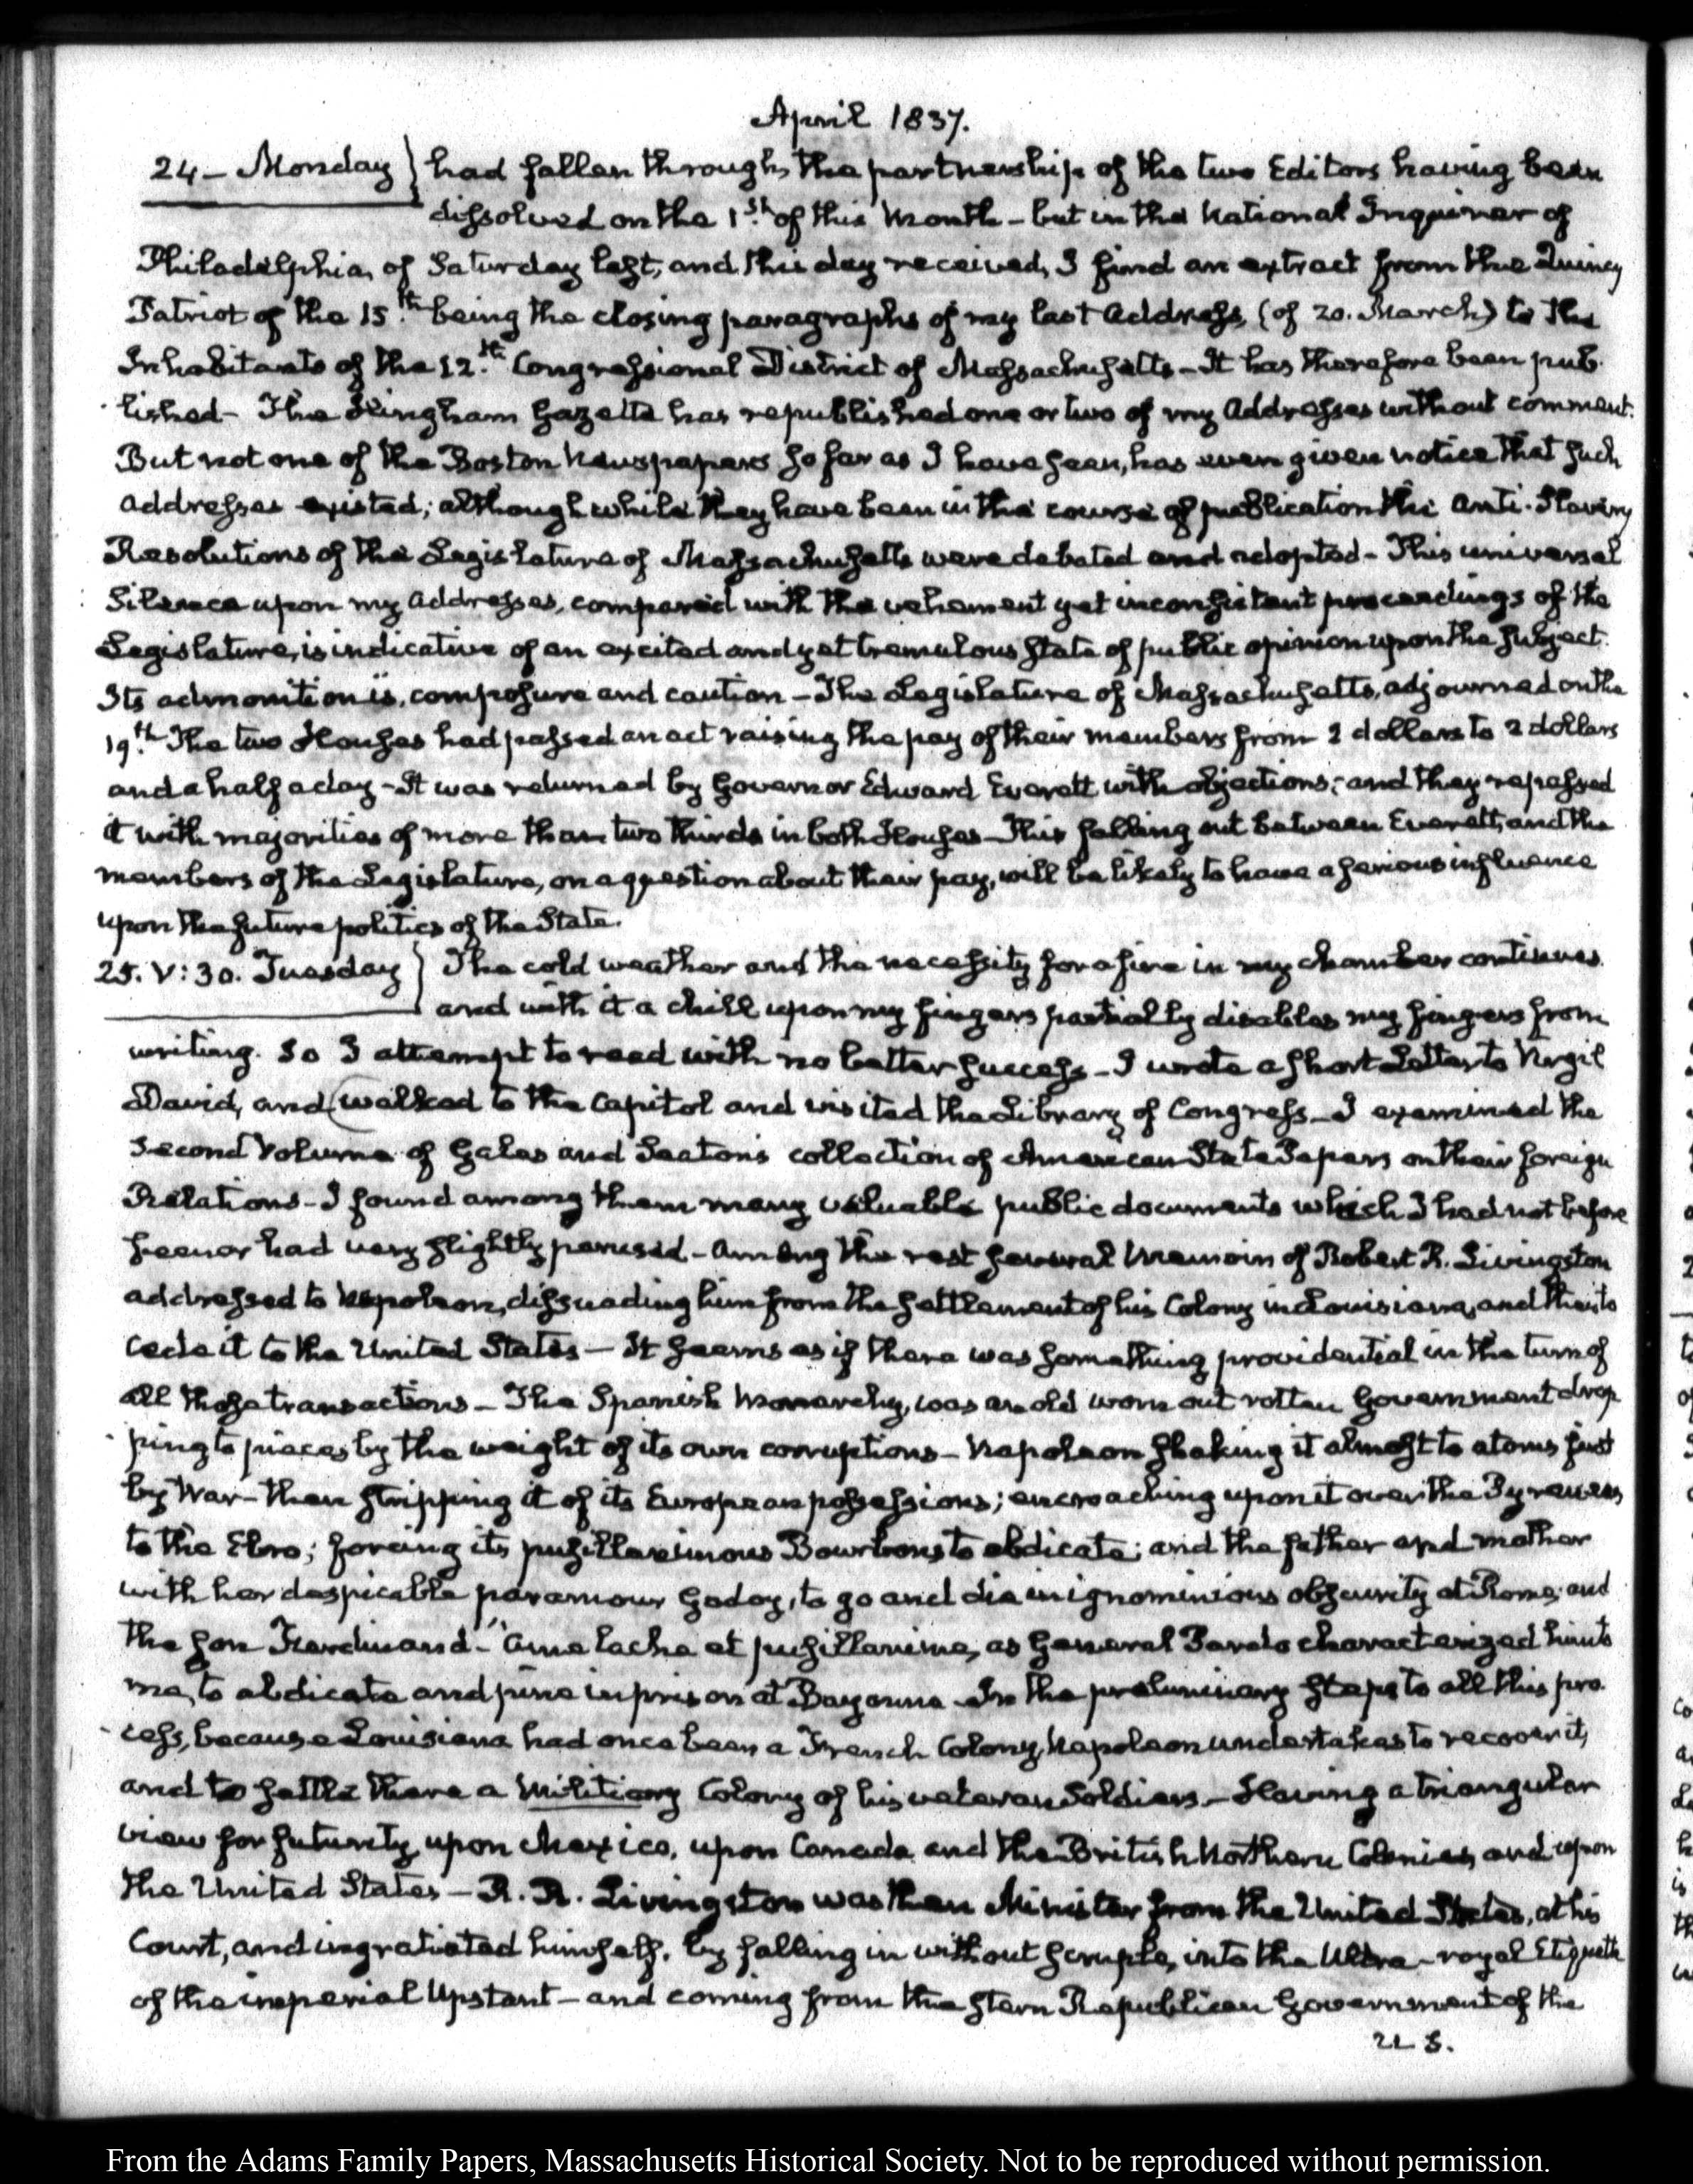 April 1837.
24 – Monday } had fallen through, the partnership of the two Editors having been
dissolved on the 1st of this Month – but in the National Enquirer of
Philadelphia, of Saturday last, and this day received, I find an extract from the Quincy
Patriot of the 15th being the closing paragraphs of my last Address, (of 20. March) to the
Inhabitants of the 12th Congressional District of Massachusetts – It has therefore been pub-
lished – The Hingham Gazette has republished one or two of my Addresses without comment.
But not one of the Boston Newspapers so far as I have seen, has even given notice that such
addresses existed; although while they have been in the course of publication the Anti-Slavery
Resolutions of the Legislature of Massachusetts were debated and adopted – This universal
Silence upon my addresses, compared with the vehement yet inconsistent proceedings of the
Legislature, is indicative of an excited and yet tremulous state of public opinion upon the subject.
Its admonition is, composure and caution – The Legislature of Massachusetts, adjourned on the
19th The two Houses had passed an act raising the pay of their members from 2 dollars to 2 dollars
and a half a day – It was returned by Governor Edward Everett with objections; and they repassed
it with majorities of more than two thirds in both Houses – This falling out between Everett, and the
members of the Legislature, on a question about their pay, will be likely to have a serious influence
upon the future politics of the State.
25. V:30. Tuesday } The cold weather and the necessity for a fire in my chamber continues
and with it a chill upon my fingers partially disables my fingers from
writing. So I attempt to read with no better success – I wrote a short Letter to Virgil
David, and (walked to the Capitol and visited the Library of Congress – I examined the
second Volume of Gales and Seaton's collection of American State Papers on their foreign
Relations – I found among them many valuable public documents which I had not before
seen or had very slightly perused – Among the rest several Memoirs of Robert R. Livingston
addressed to Napoleon, dissuading him from the settlement of his Colony in Louisiana, and then to
cede it to the United States – It seems as if there was something providential in the turn of
all those transactions – The Spanish Monarchy, was an old worn out rotten Government drop-
ping to pieces by the weight of its own corruptions – Napoleon shaking it almost to atoms first
by War – then stripping it of its European possessions; encroaching upon it over the Pyrenees
to the Ebro; forcing its pusillanimous Bourbons to abdicate; and the father and mother
with her despicable paramour Godoy, to go and die in ignominious obscurity at Rome; and
the son Ferdinand – "ame lache et pusillanime, as General Pardo characterized him to
me, to abdicate and pine in prison at Bayonne – In the preliminary steps to all this pro-
cess, because Louisiana had once been a French Colony, Napoleon undertakes to recover it,
and to settle there a Military Colony of his veteran Soldiers – Having a triangular
view for futurity, upon Mexico, upon Canada and the British Northern Colonies, and upon
the United States – R. R. Livingston was then Minister from the United States, at his
Court, and ingratiated himself, by falling in without scruple, into the Ultra-royal Etiquette
of the imperial Upstart – and coming from the stern Republican Government of the
U. S.
From the Adams Family Papers, Massachusetts Historical Society. Not to be reproduced without permission.